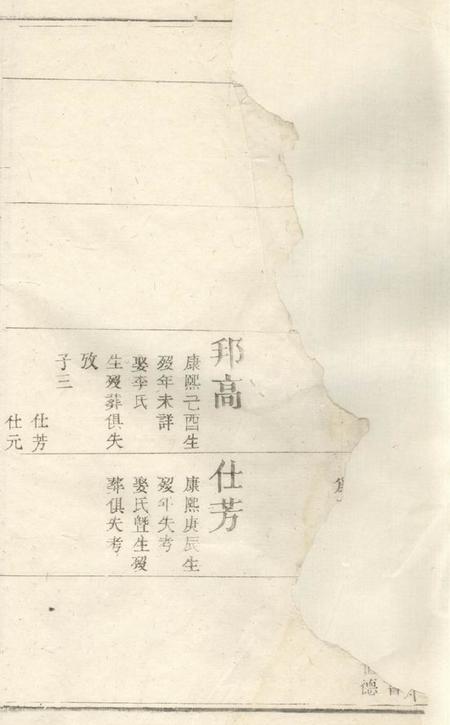 邦高
康熙己酉生
殁年未詳
娶李氏
生殁葬俱失
攷
子三
仕芳
仕元
仕芳
康熙庚辰生
殁年失考
娶氏曁生殁
葬俱失考
德